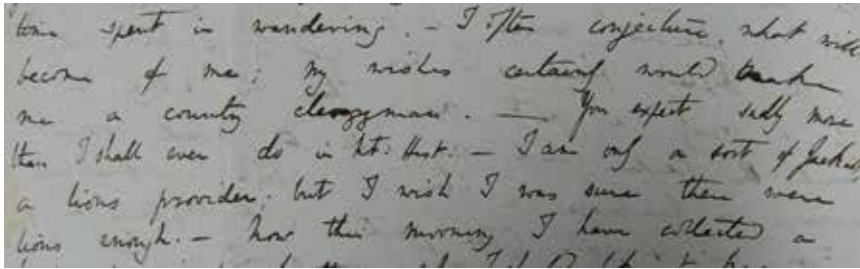 time spent in wandering. — I often conjecture, what will
become of me; my wishes certainly would make
me a country clergyman. — You expect sadly more
than I shall ever do in Nt. Hist. — I am only a sort of Jackall,
a lions provider; but I wish I was sure there were
lions enough. — how this morning I have collected a